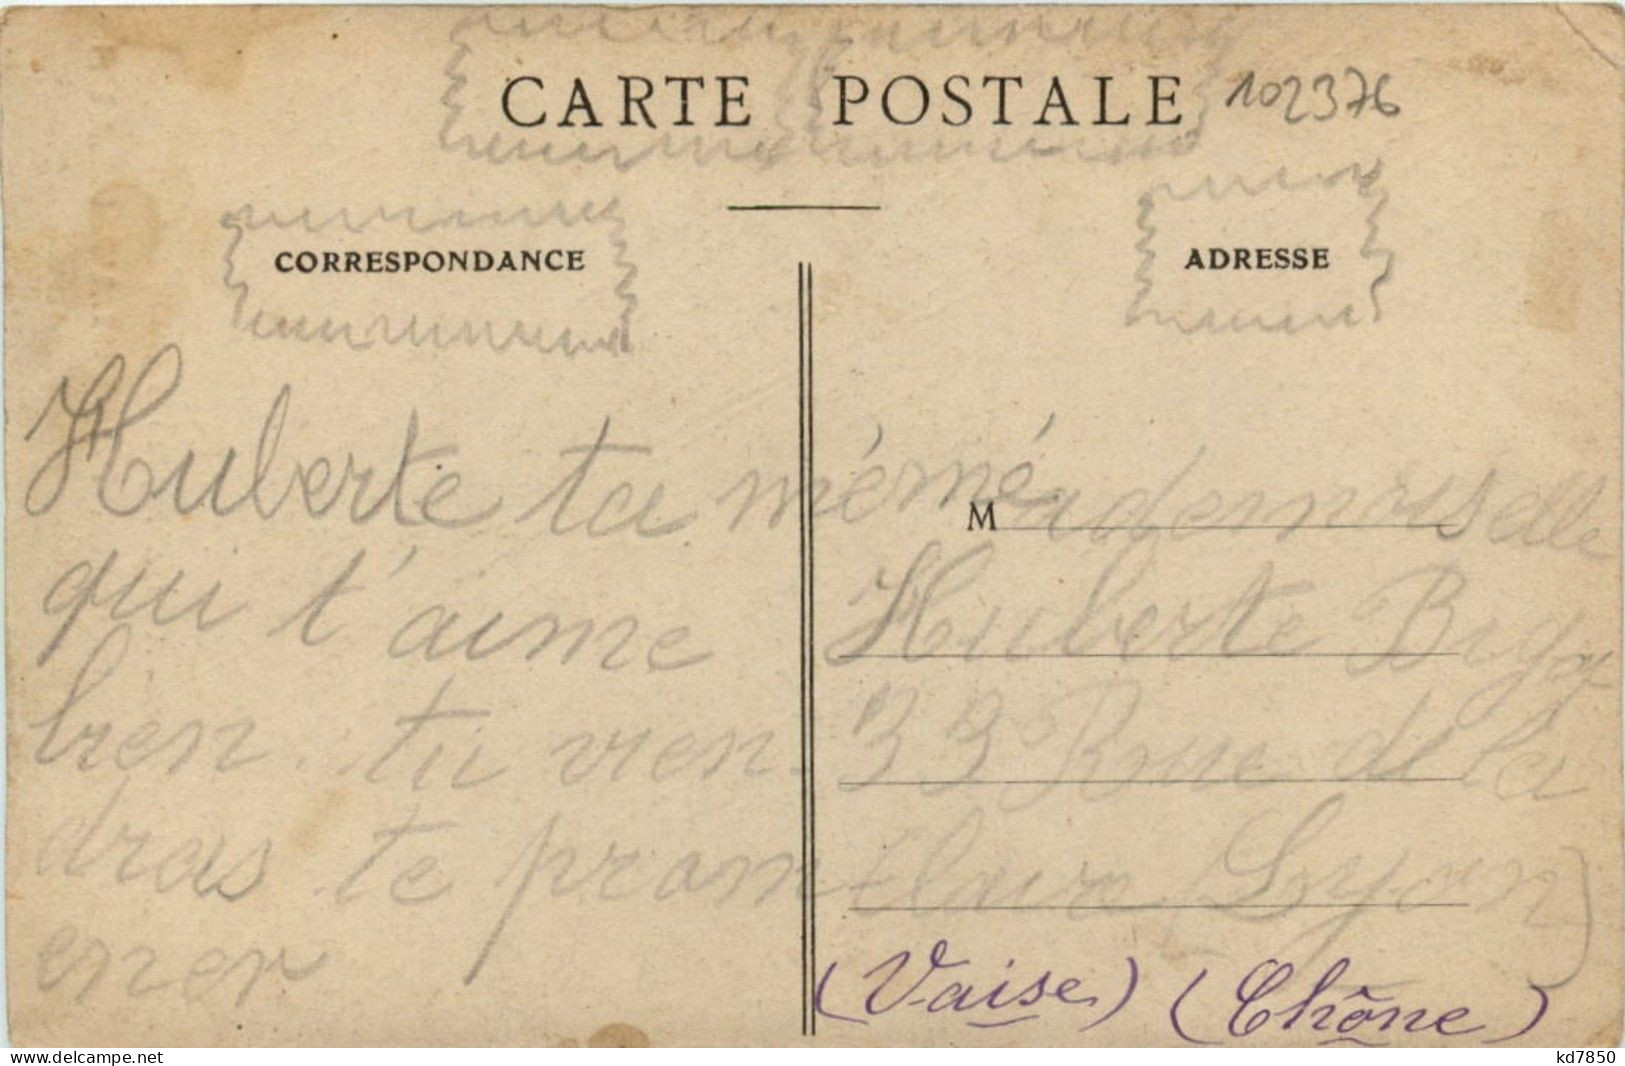 CARTE POSTALE 102376
CORRESPONDANCE
ADRESSE
Huberte ta mémé
qui t'aime
bien. tu vien-
dras te prom-
ener
Mademoiselle
Huberte
33 Rue de la
Claire (Lyon)
(Vaise) (Rhône)
www.delcampe.net
kd7850